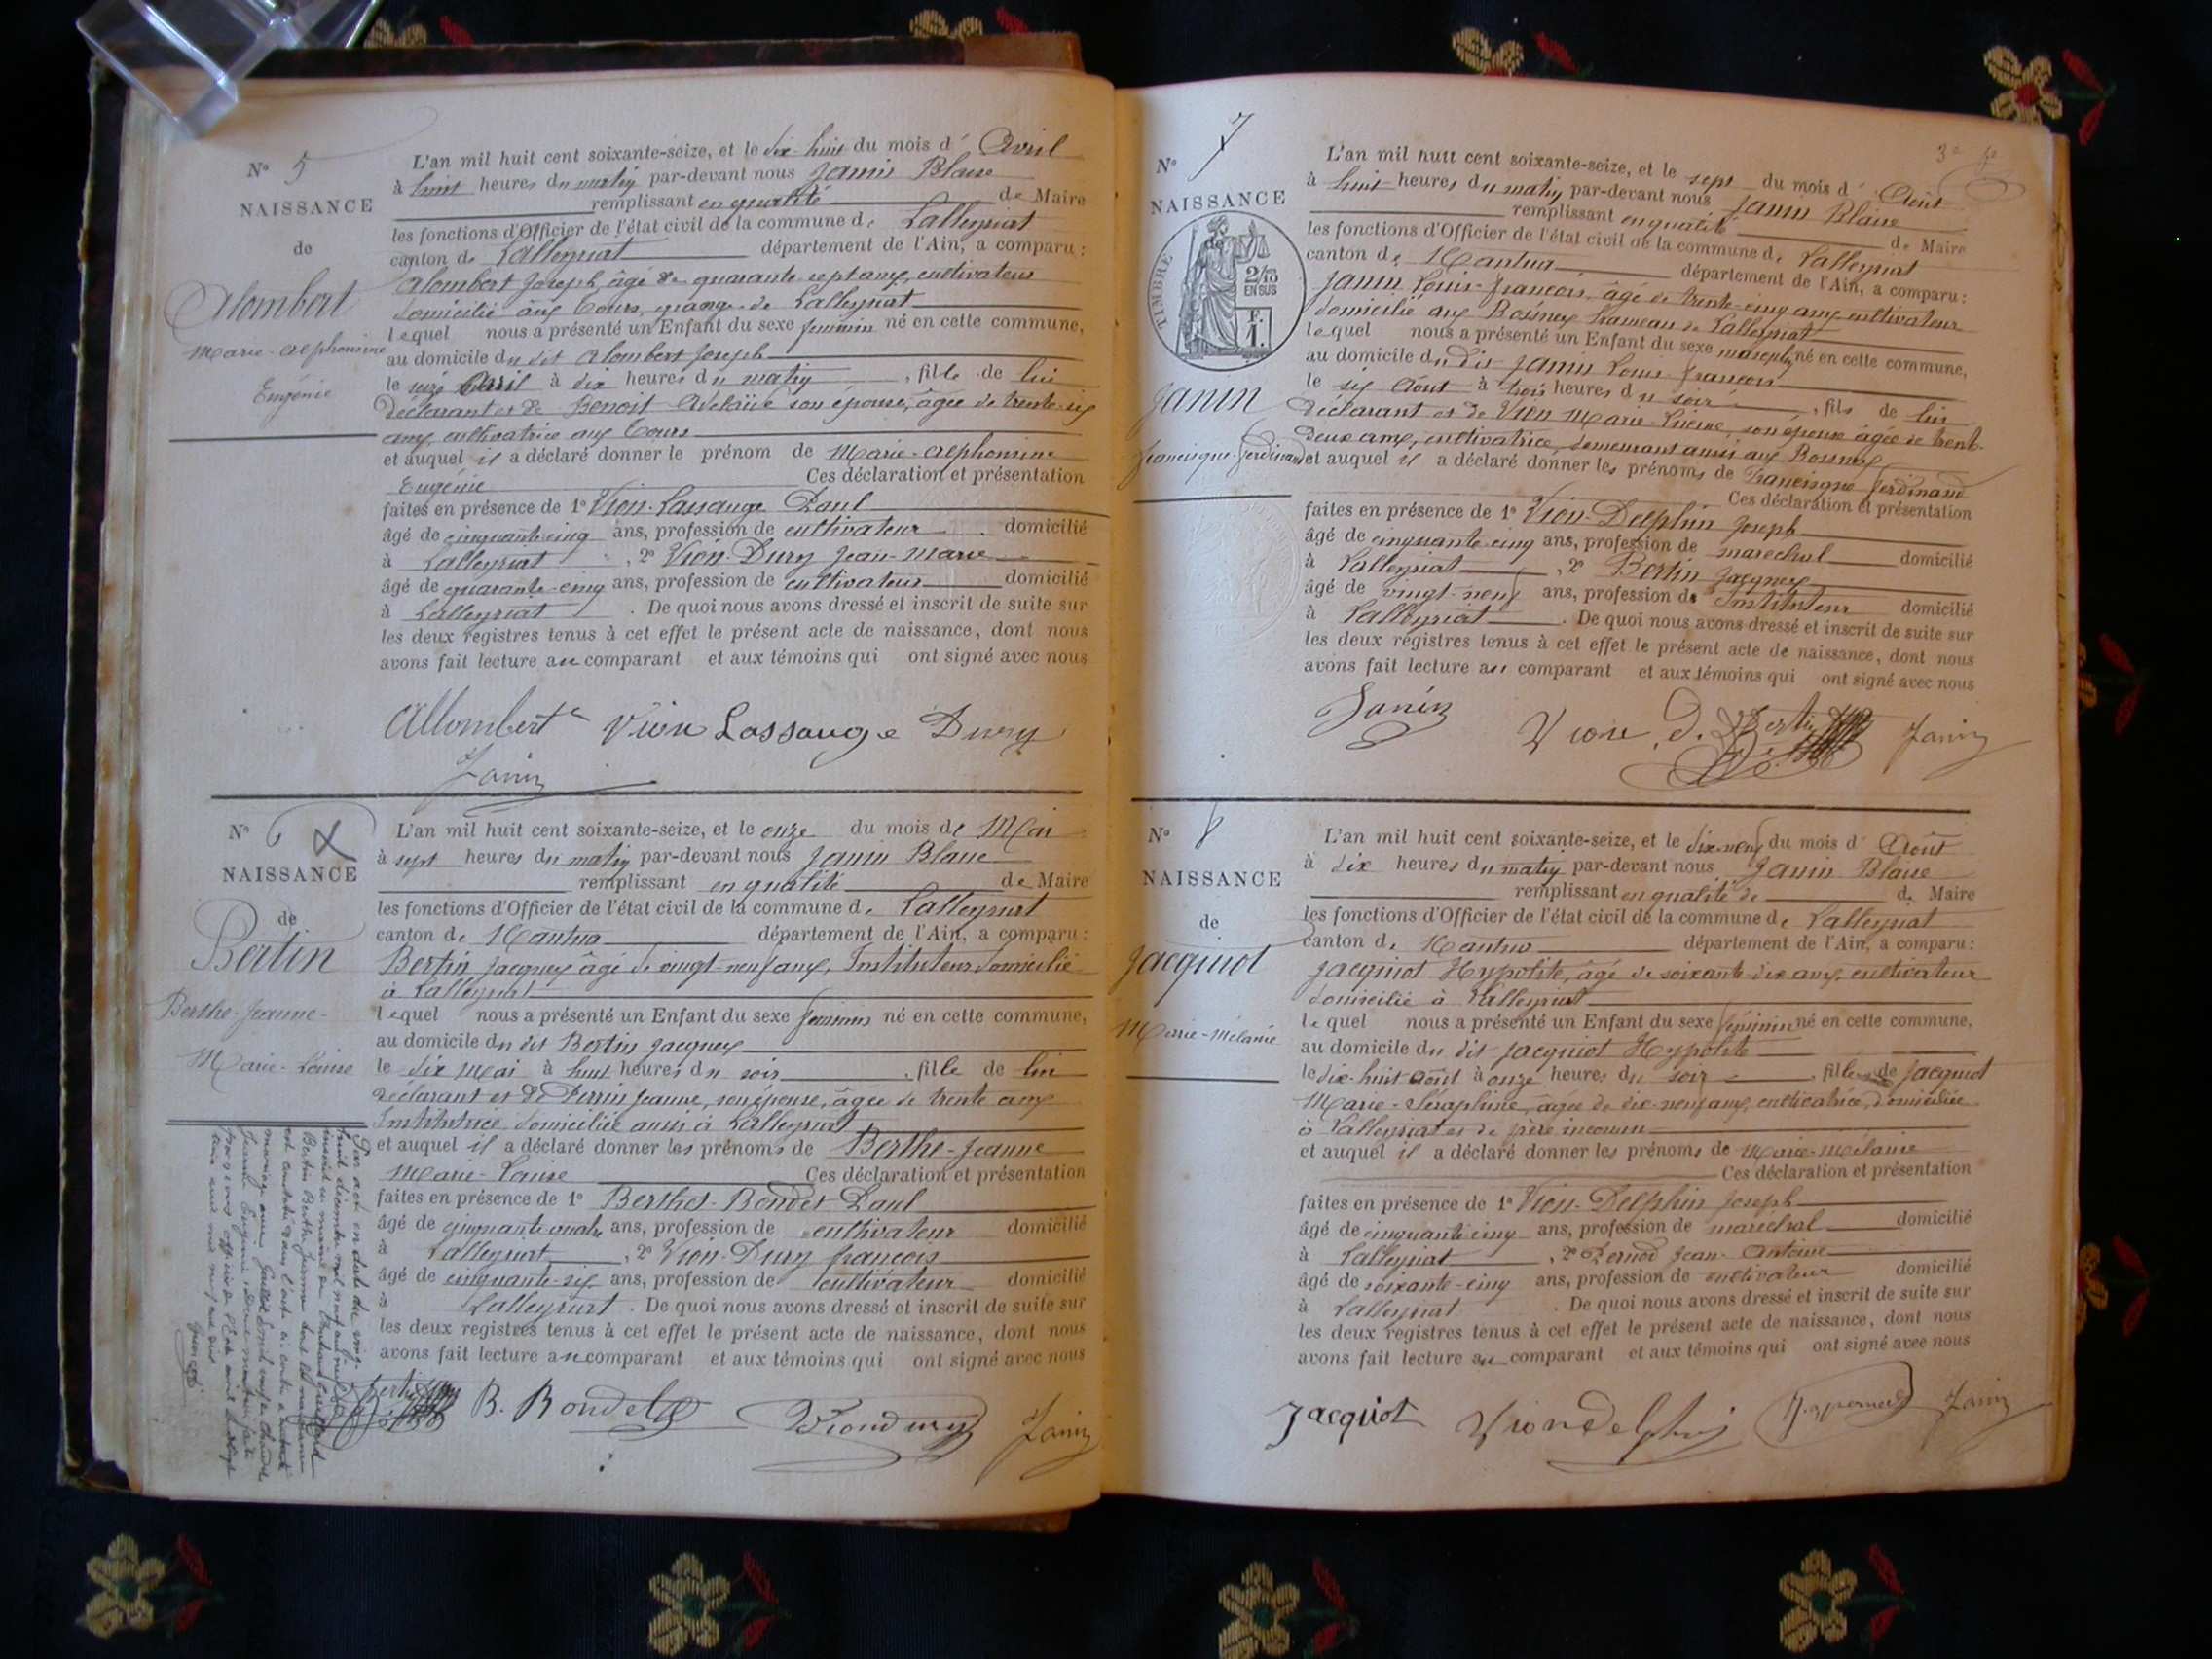 N° 5
NAISSANCE
de
Alombert
Marie-Alphonsine
Eugénie
L'an mil huit cent soixante-seize, et le dix-huit du mois d' Avril
à huit heures du matin par-devant nous Janin Blaise
remplissant en qualité de Maire
les fonctions d'Officier de l'état civil de la commune de Lalleyriat
canton de Lalleyriat département de l'Ain, a comparu :
Alombert Joseph, âgé de quarante sept ans, cultivateur
domicilié aux Cours, grange de Lalleyriat
lequel nous a présenté un Enfant du sexe féminin né en cette commune,
au domicile du dit Alombert Joseph
le seize Avril à dix heures du matin , fille de lui
déclarant et de Benoit Adelaïde son épouse, âgée de trente-six
ans, cultivatrice aux Cours
et auquel il a déclaré donner le prénom de Marie-Alphonsine
Eugénie Ces déclaration et présentation
faites en présence de 1° Vion-Lassauge Paul
âgé de cinquante-cinq ans, profession de cultivateur domicilié
à Lalleyriat , 2° Vion-Dury Jean-Marie
âgé de quarante-cinq ans, profession de cultivateur domicilié
à Lalleyriat . De quoi nous avons dressé et inscrit de suite sur
les deux registres tenus à cet effet le présent acte de naissance, dont nous
avons fait lecture au comparant et aux témoins qui ont signé avec nous
Allombert Vion Lassauge Dury
Janin
N° 6
NAISSANCE
de
Bertin
Berthe-Jeanne-
Marie-Louise
L'an mil huit cent soixante-seize, et le onze du mois de Mai
à sept heures du matin par-devant nous Janin Blaise
remplissant en qualité de Maire
les fonctions d'Officier de l'état civil de la commune de Lalleyriat
canton de Nantua département de l'Ain, a comparu :
Bertin Jacques âgé de vingt-neuf ans, Instituteur domicilié
à Lalleyriat
lequel nous a présenté un Enfant du sexe féminin né en cette commune,
au domicile du dit Bertin Jacques
le dix Mai à huit heures du soir , fille de lui
déclarant et de Perrin Jeanne, son épouse, âgée de trente ans
Institutrice domiciliée aussi à Lalleyriat
et auquel il a déclaré donner les prénoms de Berthe-Jeanne
Marie-Louise Ces déclaration et présentation
faites en présence de 1° Berthet-Bondet Paul
âgé de cinquante quatre ans, profession de cultivateur domicilié
à Lalleyriat , 2° Vion-Dury François
âgé de cinquante-six ans, profession de cultivateur domicilié
à Lalleyriat . De quoi nous avons dressé et inscrit de suite sur
les deux registres tenus à cet effet le présent acte de naissance, dont nous
avons fait lecture au comparant et aux témoins qui ont signé avec nous
Par acte en date du vingt
huit décembre mil neuf cent neuf
Bertin Berthe Jeanne dont la naissance
est constatée dans l'acte ci contre a contracté
mariage avec
Bertin B. Bondet Viondury Janin
3e f
N° 7
NAISSANCE
TIMBRE
2/10
EN SUS
F.
1.
Janin
Francisque-Ferdinand
L'an mil huit cent soixante-seize, et le sept du mois d' Août
à huit heures du matin par-devant nous Janin Blaise
remplissant en qualité de Maire
les fonctions d'Officier de l'état civil de la commune de Lalleyriat
canton de Nantua département de l'Ain, a comparu :
Janin Louis-François, âgé de trente-cinq ans cultivateur
domicilié aux hameau de Lalleyriat
lequel nous a présenté un Enfant du sexe masculin né en cette commune,
au domicile du dit Janin Louis-François
le six Août à trois heures du soir , fils de lui
déclarant et de Vion Marie-, son épouse âgée de trente-
deux ans, cultivatrice, demeurant aussi aux
et auquel il a déclaré donner les prénoms de Francisque Ferdinand
Ces déclaration et présentation
faites en présence de 1° Vion-Delphin Joseph
âgé de cinquante cinq ans, profession de marechal domicilié
à Lalleyriat , 2° Bertin Jacques
âgé de vingt-neuf ans, profession de Instituteur domicilié
à Lalleyriat . De quoi nous avons dressé et inscrit de suite sur
les deux registres tenus à cet effet le présent acte de naissance, dont nous
avons fait lecture au comparant et aux témoins qui ont signé avec nous
Janin Vion. D. Bertin Janin
N° 8
NAISSANCE
de
Jacquiot
Marie-Mélanie
L'an mil huit cent soixante-seize, et le dix-neuf du mois d' Août
à dix heures du matin par-devant nous Janin Blaise
remplissant en qualité de de Maire
les fonctions d'Officier de l'état civil de la commune de Lalleyriat
canton de Nantua département de l'Ain, a comparu :
Jacquiot Hypolite, âgé de soixante dix ans, cultivateur
domicilié à Lalleyriat
lequel nous a présenté un Enfant du sexe féminin né en cette commune,
au domicile du dit Jacquiot Hypolite
le dix-huit Août à onze heures du soir , fille de Jacquiot
Marie-Séraphine, âgée de dix-neuf ans, cultivatrice, domiciliée
à Lalleyriat et de père inconnu
et auquel il a déclaré donner les prénoms de Marie-Mélanie
Ces déclaration et présentation
faites en présence de 1° Vion-Delphin Joseph
âgé de cinquante cinq ans, profession de marechal domicilié
à Lalleyriat , 2° Pernod Jean-Antoine
âgé de soixante-cinq ans, profession de cultivateur domicilié
à Lalleyriat . De quoi nous avons dressé et inscrit de suite sur
les deux registres tenus à cet effet le présent acte de naissance, dont nous
avons fait lecture au comparant et aux témoins qui ont signé avec nous
Jacquiot Viondelphin Janin